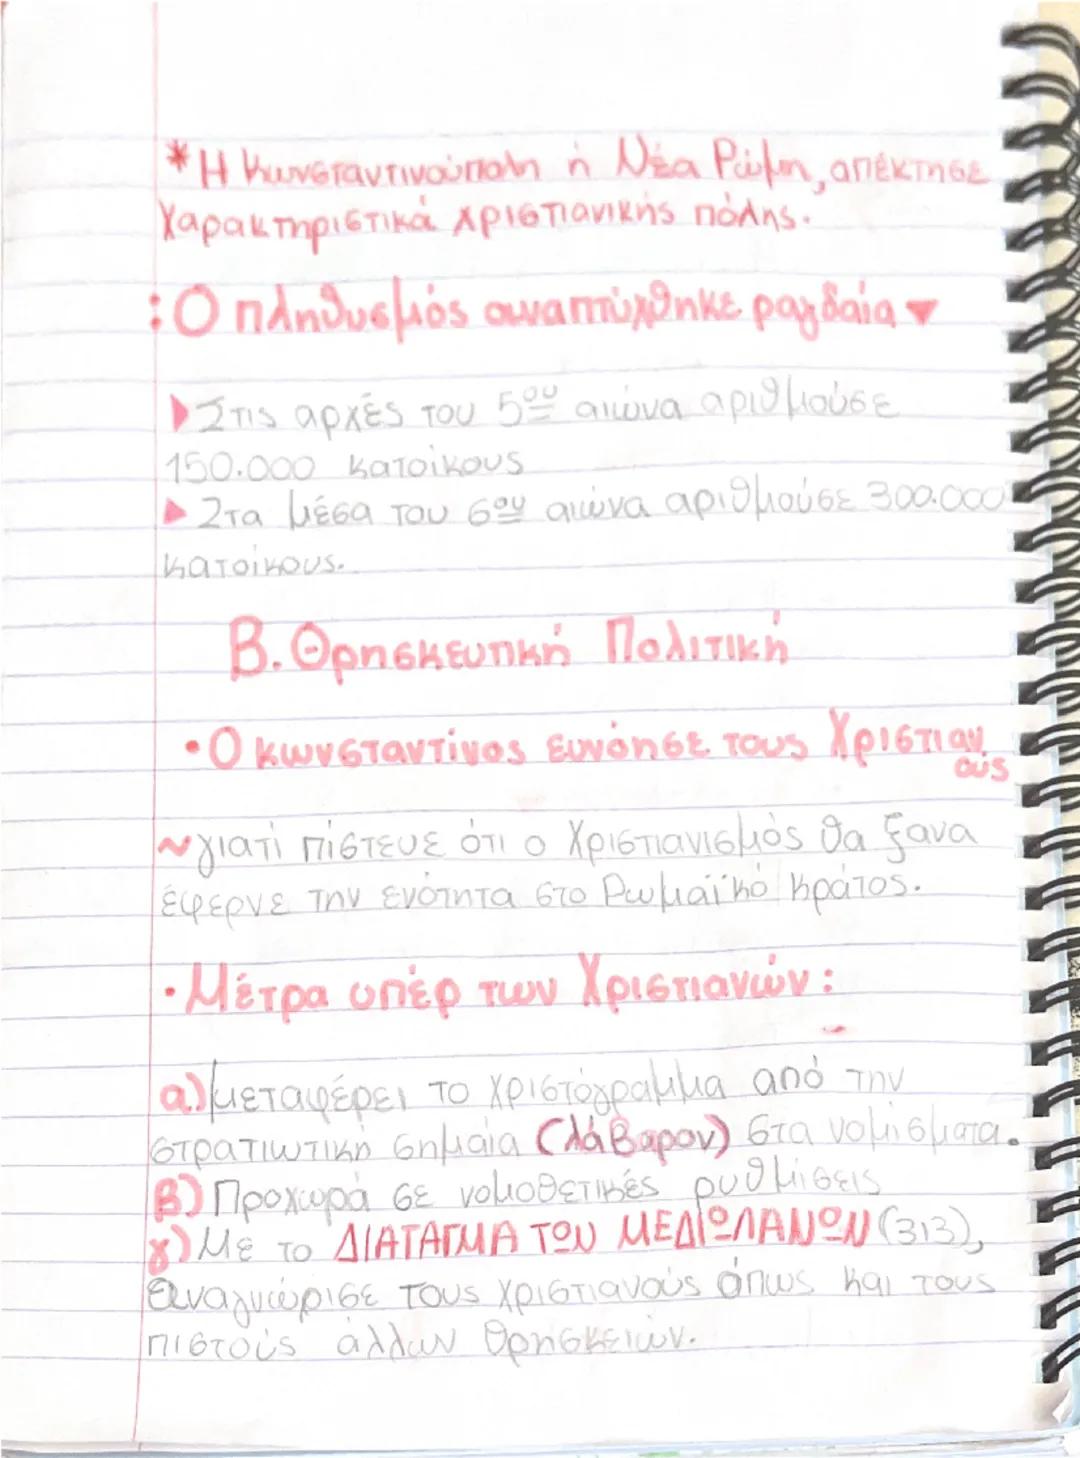 *Η Κωνσταντινούπολη ή Νέα Ρώμη, απέκτησε
χαρακτηριστικά χριστιανικής πόλης.
: Ο πληθυσμός αναπτύχθηκε ραγδαία
Στις αρχές του 5ου αιώνα αριθμούσε
150.000 κατοίκους
Στα μέσα του 6ου αιώνα αριθμούσε 300.000
κατοίκους.
Β. Θρησκευτική Πολιτική
• Ο κωνσταντίνος ευνόησε τους Χριστιαν
ούς
~γιατί πίστευε ότι ο Χριστιανισμός θα ξανα
έφερνε την ενότητα στο Ρωμαϊκό κράτος.
• Μέτρα υπέρ των Χριστιανών:
α) μεταφέρει το χριστόγραμμα από την
στρατιωτική σημαία (λάβαρον) στα νομίσματα.
β) Προχωρά σε νομοθετικές ρυθμίσεις
γ) Με το ΔΙΑΤΑΓΜΑ ΤΩΝ ΜΕΔΙΩΛΑΝΩΝ (313),
αναγνώρισε τους χριστιανούς όπως και τους
πιστούς άλλων θρησκειών.